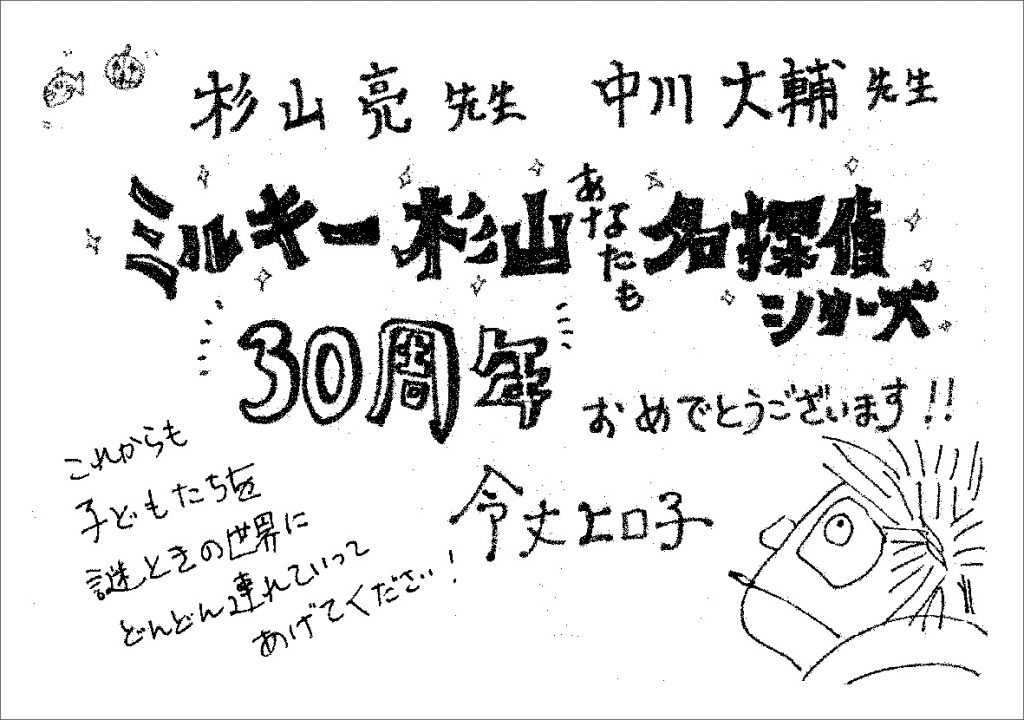 杉山 亮 先生 中川 大輔 先生
ミルキー杉山
あなたも
名探偵
シリーズ
30周年
おめでとうございます!!
これからも
子どもたちを
謎ときの世界に
どんどん連れていって
あげてください!
令丈ヒロ子